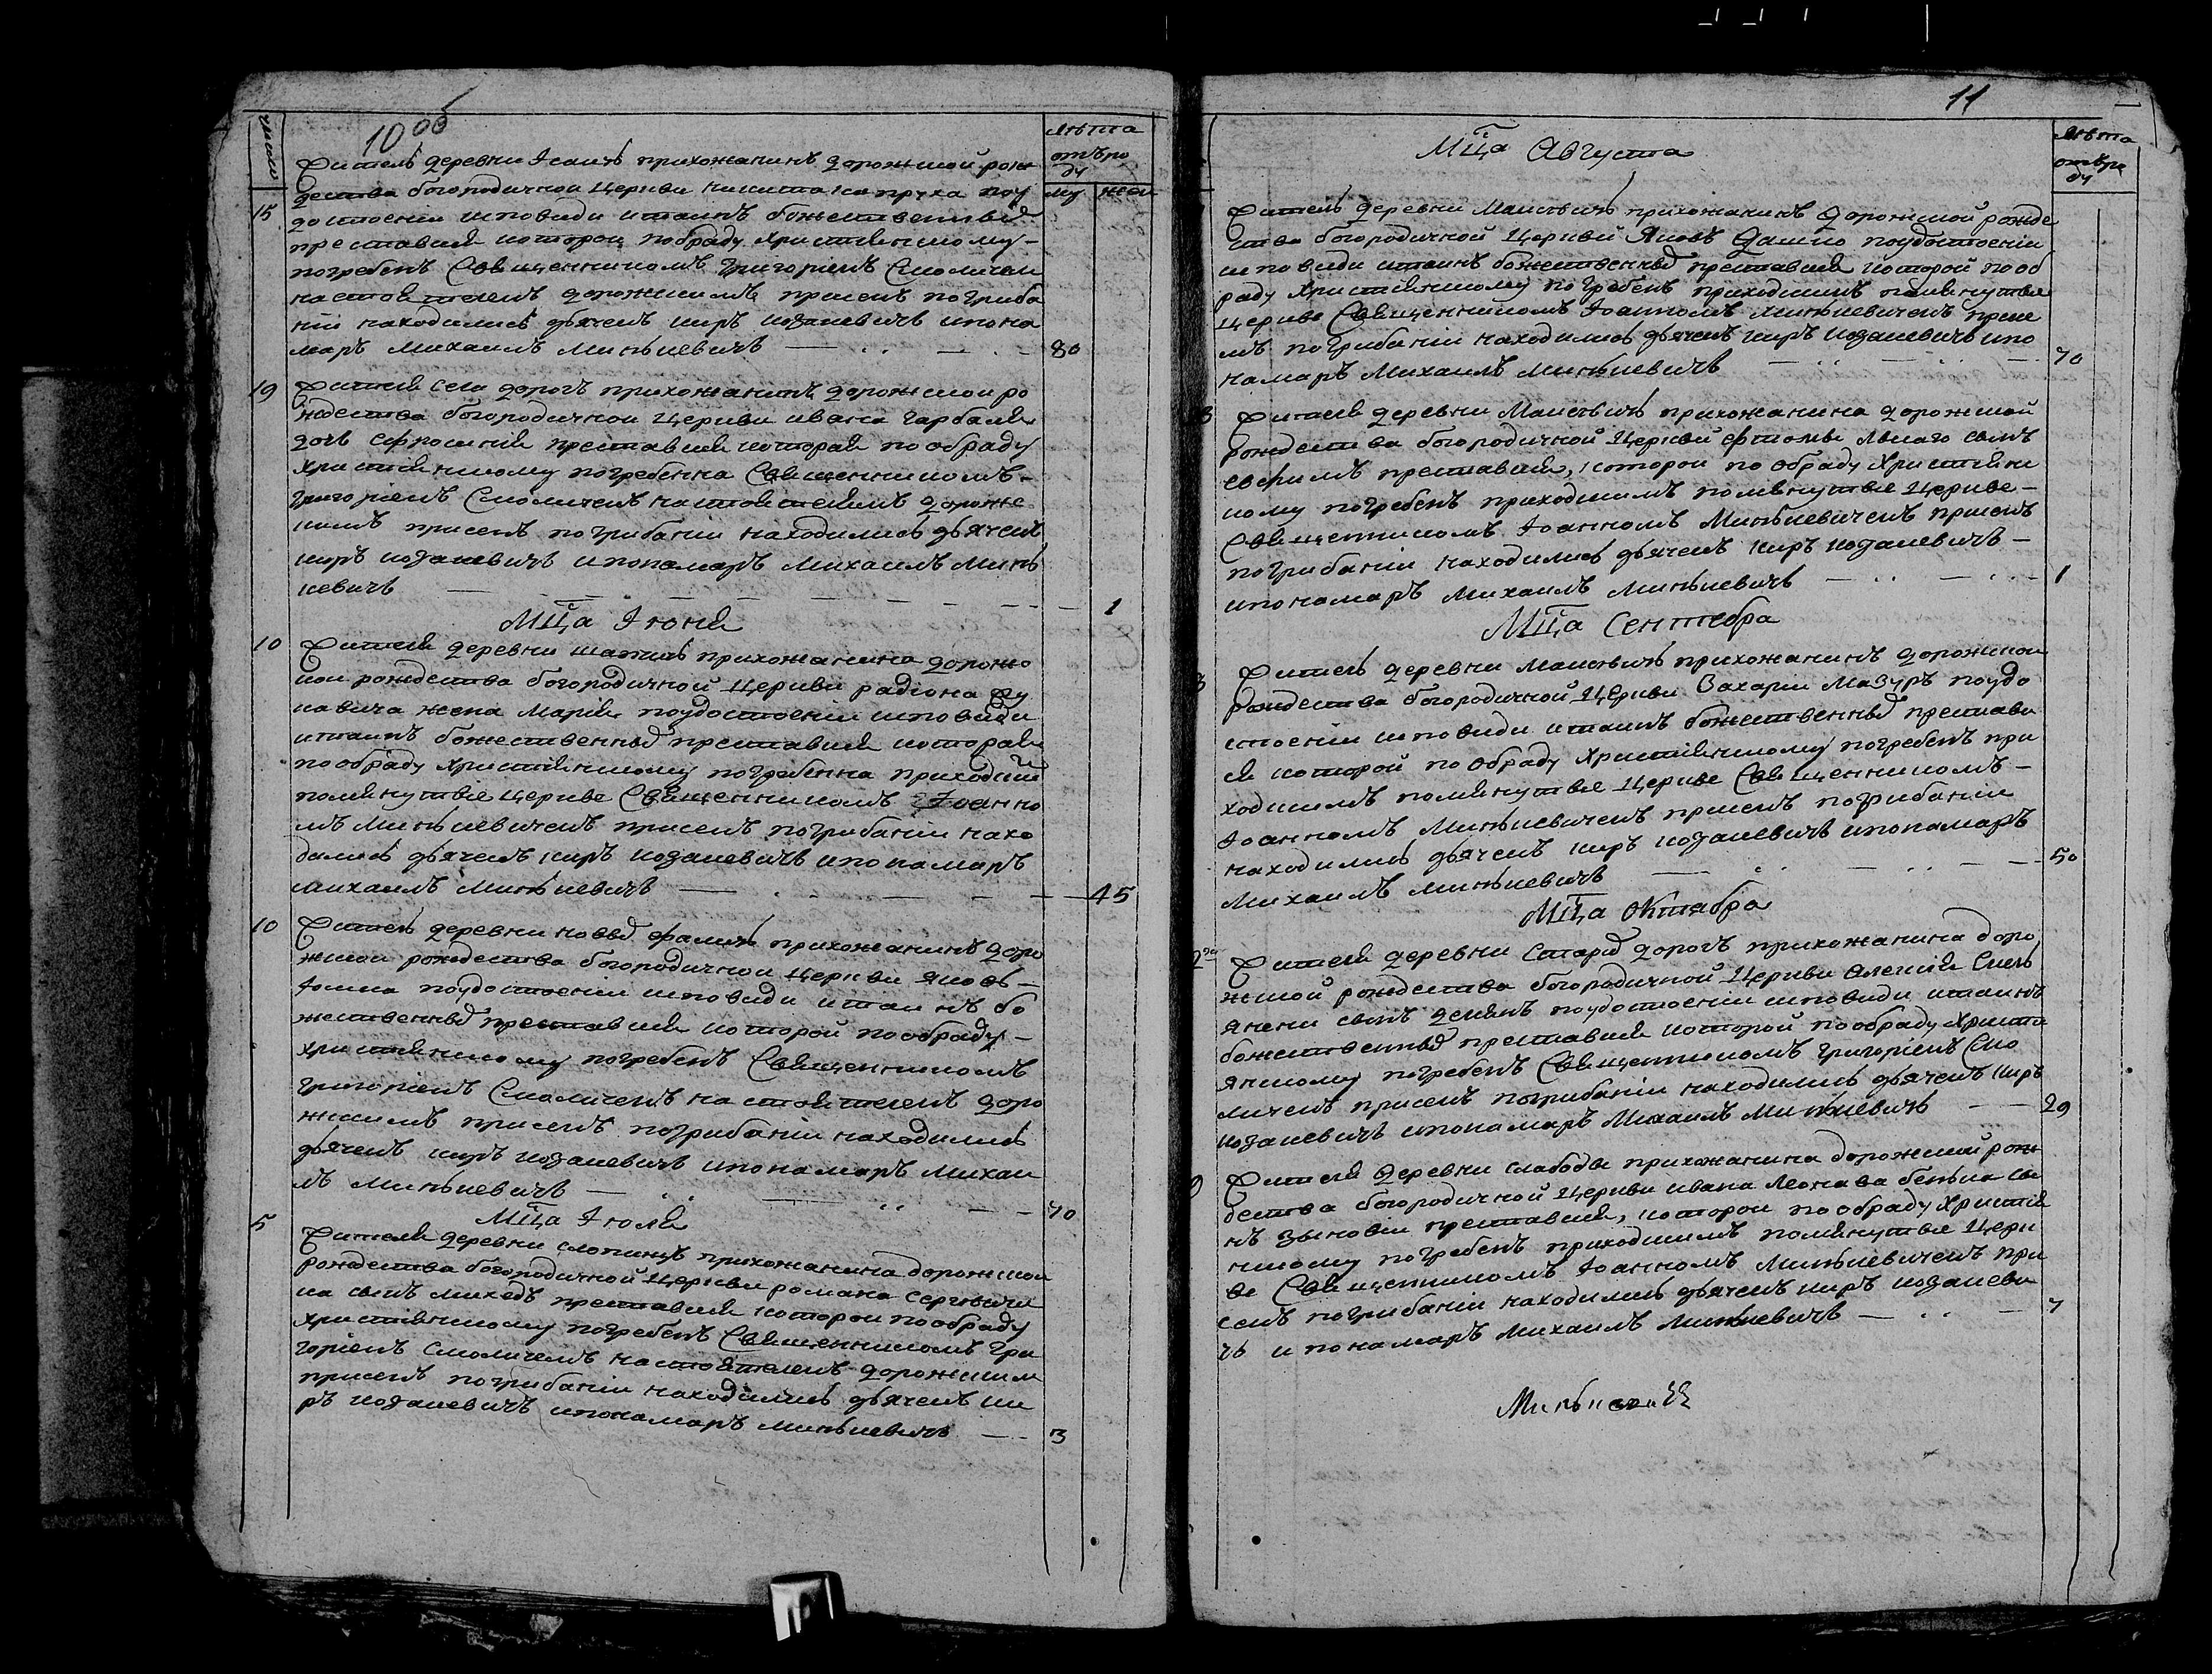 10 об
число
лѣта
отъ ро
ду
му жен
15
Житель деревни Исаичъ прихожанинъ дорожской рож
дества богородичной церкви никита капруха поу
достоении исповѣди итаинъ божественныхъ
преставися которои пообряду християнскому
погребенъ Священникомъ Григориемъ Смоличем
настоятелемъ дорожскимъ присемъ погриба
нии находились дьячекъ киръ козакевичъ ипоно
маръ Михаилъ Минкевичъ 80
19 Жителя села дорогъ прихожанина дорожской ро
ждества богородичной церкви ивана гарбаля
дочь ефросиния преставися которая по обряду
християнскому погребенна Священникомъ
Григориемъ Смоличемъ настоятелемъ дороже
кимъ присемъ погрибании находились дьячекъ
киръ козакевичъ ипонамаръ Михаилъ Минь
кевичъ 1
Мца Июня
10 Жителя деревни прихожанина дорожс
кои рождества богородичной церкви радиона
кавича жена Мария поудостоении исповѣди
итаинъ божественныхъ преставися которая
пообряду християнскому погребенна приходским
помянутыя церкве Священникомъ Иоанно
мъ Минкевичемъ присемъ погрибании нахо
дились дьячекъ киръ козакевичъ ипонамаръ
михаилъ Минкевичъ 45
10 Житель деревни новыхъ фаличъ прихожанинъ доро
жской рождества богородичной церкви яковъ
поудостоении исповѣди итаинъ бо
жественныхъ преставися которой пообряду
християнскому погребенъ Священникомъ
Григориемъ Смоличемъ настоятелемъ доро
жскимъ присемъ погрибании находились
дьячекъ киръ козакевичъ ипонамаръ Михаи
лъ Минкевичъ 70
Мца Июля
5 Жителя деревни прихожанина дорожской
рождества богородичной церкви романа
ка сынъ преставися которои пообряду
християнскому погребенъ Священникомъ Гри
гориемъ Смоличемъ настоятелемъ дорожским
присемъ погрибании находились дьячекъ ки
ръ козакевичъ ипонамаръ минкевичъ 3
11
лѣта
отъ ро
ду
Мца Августа
Житель деревни Масевичъ прихожанинъ дорожской рожде
ства богородичной церкви Яковъ Дашко поудостоении
исповѣди итаинъ божественныхъ преставися которой пооб
ряду християнскому погребенъ приходскимъ помянутыя
церкве Священникомъ Иоанномъ Минкевичемъ присе
мъ погрибании находились дьячекъ киръ козакевичъ ипо
намаръ Михаилъ Минкевичъ 70
3 Жителя деревни Масевичъ прихожанина дорожской
рождества богородичной церкви сынъ
преставися, которои по обряду християнс
кому погребенъ приходскимъ помянутыя церкве
Священникомъ Иоанномъ Минкевичемъ присемъ
погрибании находились дьячекъ киръ козакевичъ
ипонамаръ Михаилъ Минкевичъ 1
Мца Сентебра
3 Житель деревни Масевичъ прихожанинъ дорожской
рождества богородичной церкви Захарии Мазуръ поудо
стоении исповѣди итаинъ божественныхъ престави
ся которой по обряду християнскому погребенъ при
ходскимъ помянутыя церкве Священникомъ
Иоанномъ Минкевичемъ присемъ погрибании
находились дьячекъ киръ козакевичъ ипонамаръ
Михаилъ Минкевичъ 50
Мца Октабра
Жителя деревни Старыхъ дорогъ прихожанина доро
жской рождества богородичной церкви Алексия
сынъ поудостоении исповѣди итаинъ
божественныхъ преставися которой пообряду христи
янскому погребенъ Священникомъ Григориемъ Смо
личемъ присемъ погрибании находились дьячекъ киръ
козакевичъ ипонамаръ Михаилъ Минкевичъ 29
Жителя деревни слабоды прихожанина дорожской рож
дества богородичной церкви ивана сы
нъ зиновии преставися, которои пообряду христия
нскому погребенъ приходскимъ помянутыя церк
ве Священникомъ Иоанномъ Минкевичемъ при
семъ погрибании находились дьячекъ киръ козакеви
чъ и понамаръ Михаилъ Минкевичъ 7